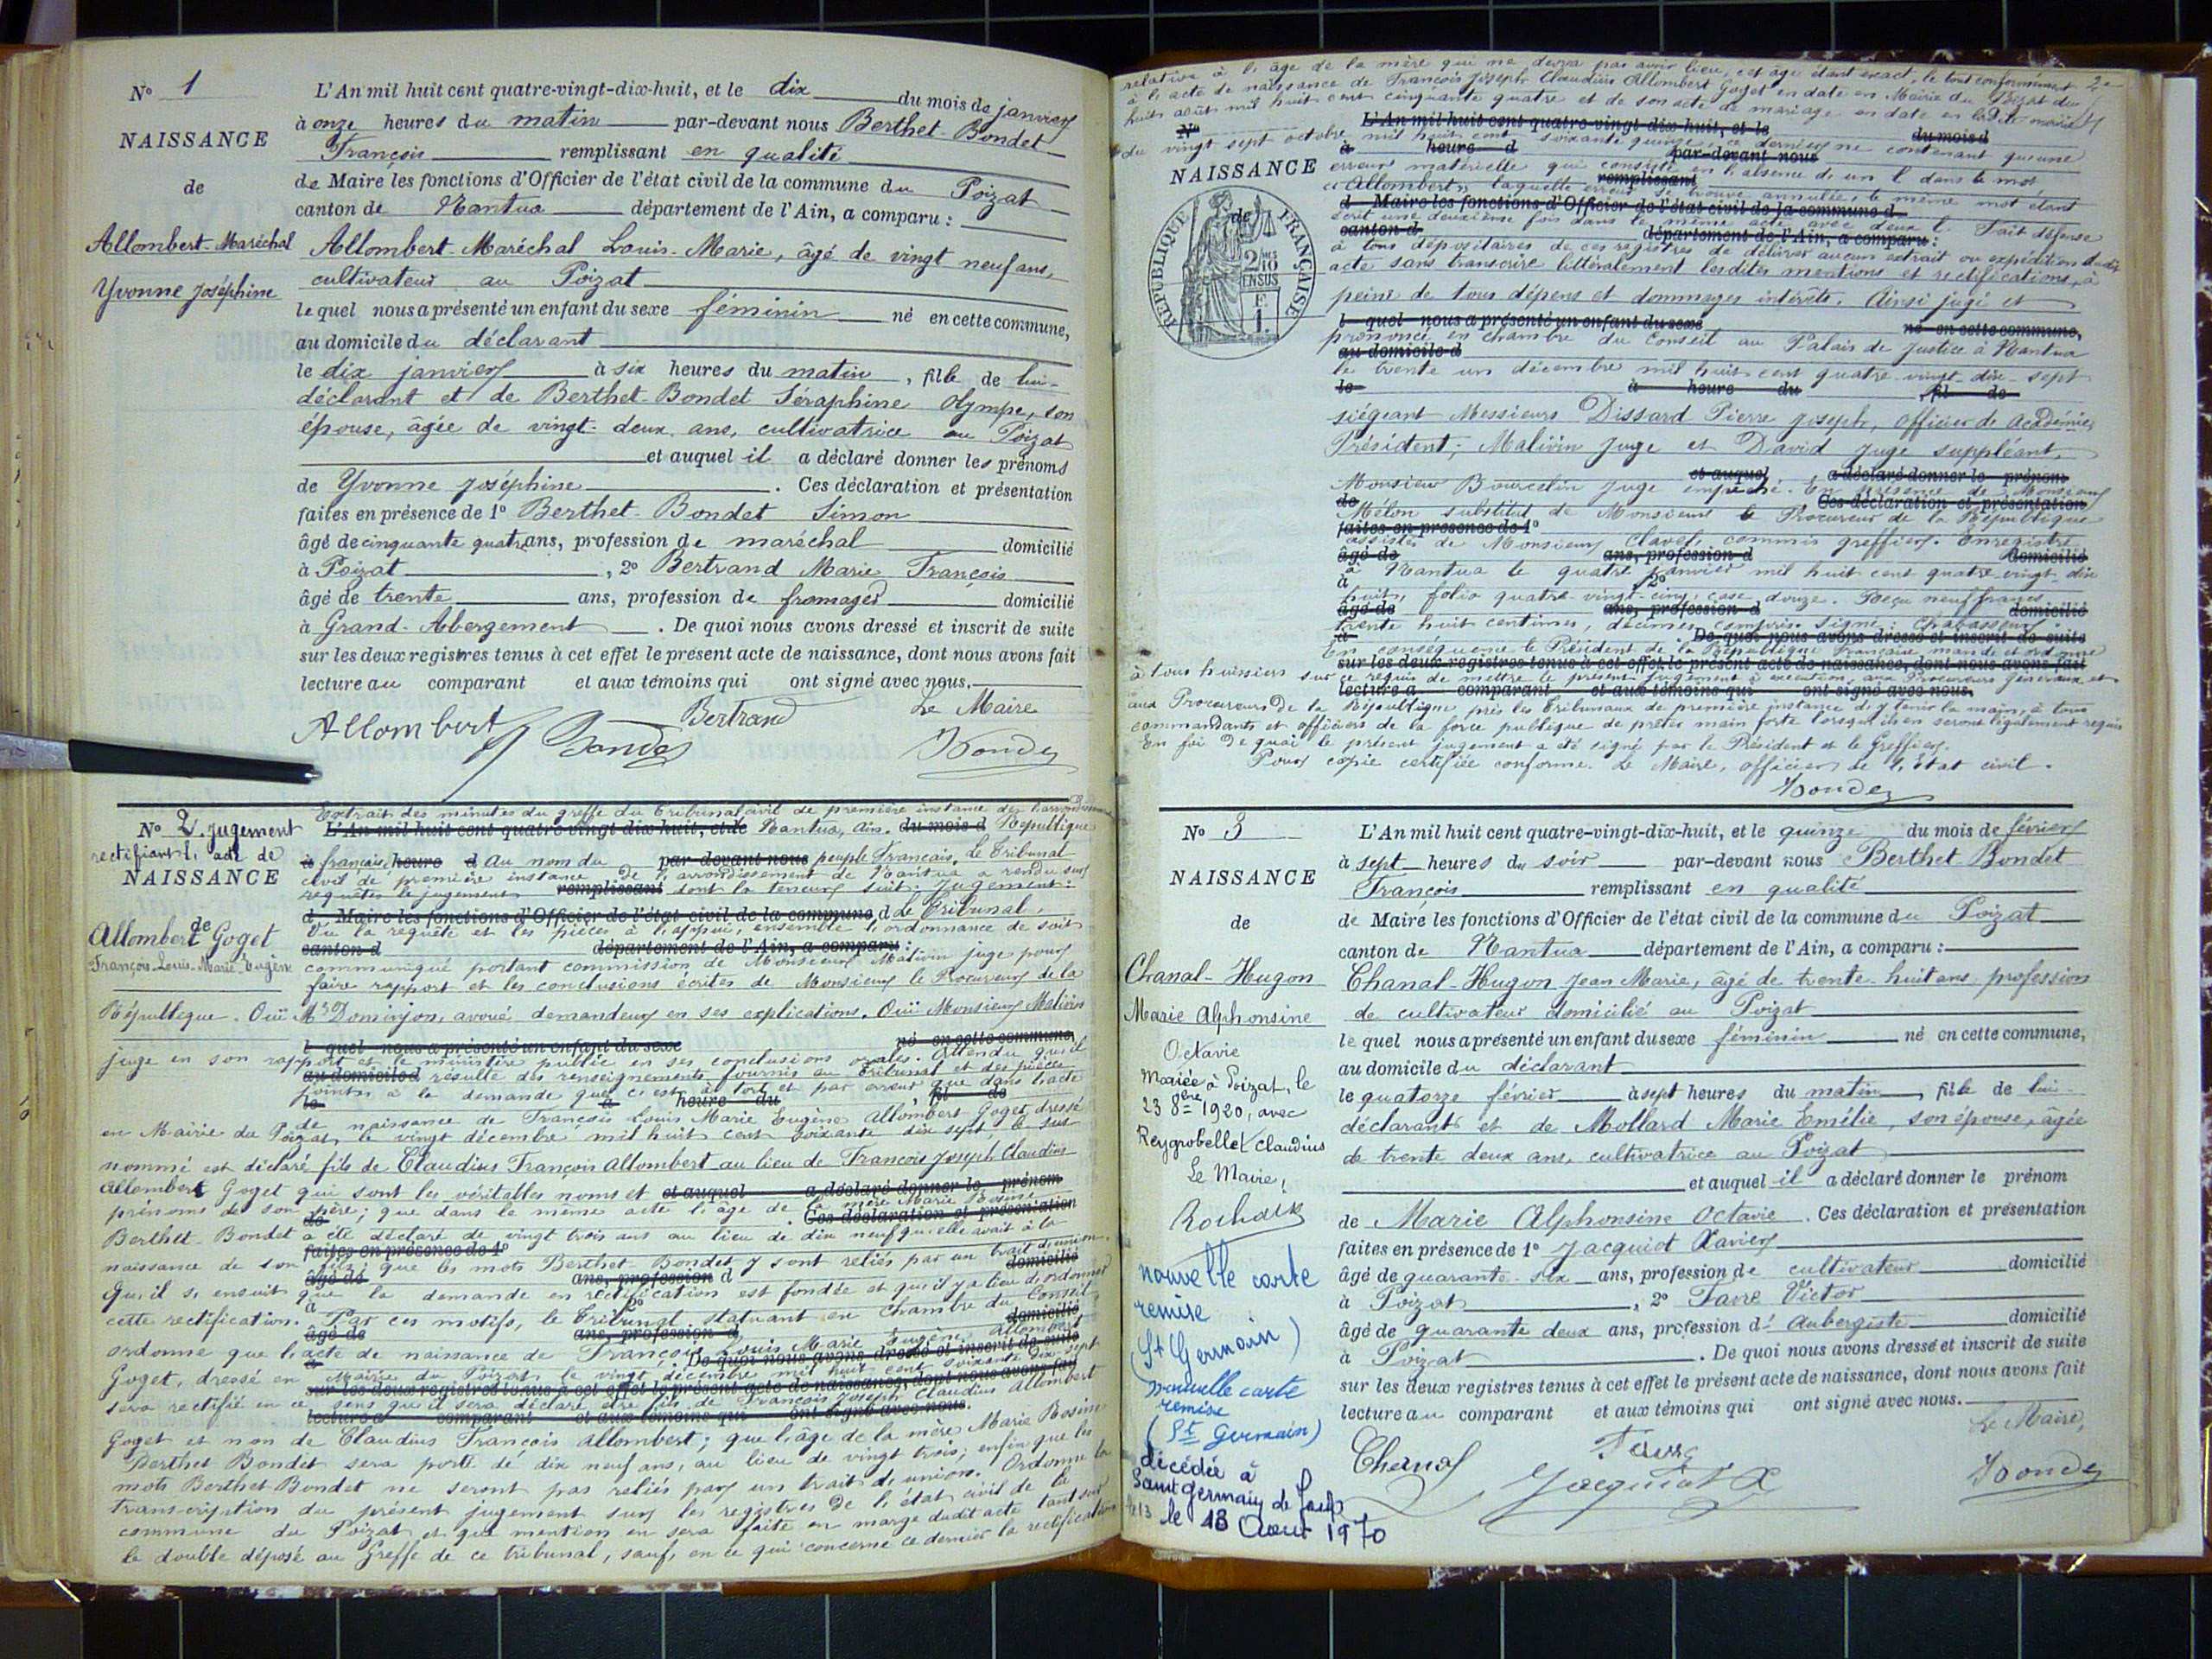 N° 1
NAISSANCE
de
Allombert-Maréchal
Yvonne Joséphine
L'An mil huit cent quatre-vingt-dix-huit, et le dix du mois de janvier
à onze heures du matin par-devant nous Berthet-Bondet
François remplissant en qualité
de Maire les fonctions d'Officier de l'état civil de la commune du Poizat
canton de Nantua département de l'Ain, a comparu :
Allombert-Maréchal Louis-Marie, âgé de vingt neuf ans,
cultivateur au Poizat
lequel nous a présenté un enfant du sexe féminin né en cette commune,
au domicile du déclarant
le dix janvier à six heures du matin, fille de lui-
déclarant et de Berthet-Bondet Séraphine Olympe, son
épouse, âgée de vingt-deux ans, cultivatrice au Poizat
et auquel il a déclaré donner les prénoms
de Yvonne Joséphine. Ces déclaration et présentation
faites en présence de 1° Berthet-Bondet Simon
âgé de cinquante quatre ans, profession de maréchal domicilié
à Poizat, 2° Bertrand Marie François
âgé de trente ans, profession de fromager domicilié
à Grand-Abergement. De quoi nous avons dressé et inscrit de suite
sur les deux registres tenus à cet effet le présent acte de naissance, dont nous avons fait
lecture au comparant et aux témoins qui ont signé avec nous.
Allombert Bondet Bertrand Le Maire
Bondet
N° 2. jugement
rectifiant l'acte de
NAISSANCE
de
Allombert Goget
François-Louis-Marie-Eugène
Extrait des minutes du greffe du Tribunal civil de première instance de l'arrondissement
L'An mil huit cent quatre-vingt-dix-huit, et le Nantua, Ain. du mois d République
à française heure d au nom du par-devant nous peuple Français. Le Tribunal
civil de première instance de l'arrondissement de Nantua a rendu sur
requête le jugement remplissant dont la teneur suit : Jugement :
d Maire les fonctions d'Officier de l'état civil de la commune d Le Tribunal,
Vu la requête et les pièces à l'appui, ensemble l'ordonnance de soit
canton d département de l'Ain, a comparu :
communiqué portant commission de Monsieur Malivin juge pour
faire rapport et les conclusions écrites de Monsieur le Procureur de la
République. Ouï Me Dominjon, avoué demandeur en ses explications. Ouï Monsieur Malivin
l quel nous a présenté un enfant du sexe né en cette commune,
juge en son rapport et le ministère public en ses conclusions orales. Attendu qu'il
au domicile d résulte des renseignements fournis au Tribunal et des pièces
jointes à la demande que c'est à tort et par erreur que dans l'acte
le à heure du , fil de
de naissance de François Louis Marie Eugène Allombert Goget, dressé
en Mairie du Poizat, le vingt décembre mil huit cent soixante dix sept, le sus
nommé est déclaré fils de Claudius François Allombert au lieu de François Joseph Claudius
Allombert Goget qui sont les véritables noms et et auquel a déclaré donner le prénom
prénoms de son père ; que dans le même acte l'âge de la mère Marie Rosine
de Ces déclaration et présentation
Berthet-Bondet a été déclaré de vingt trois ans au lieu de dix neuf qu'elle avait à la
faites en présence de 1°
naissance de son fils ; que les mots Berthet-Bondet y sont reliés par un trait d'union.
âgé de ans, profession d domicilié
Qu'il s'ensuit que la demande en rectification est fondée et qu'il y a lieu d'ordonner
à 2°
cette rectification. Par ces motifs, le Tribunal statuant en Chambre du Conseil
âgé de ans, profession d domicilié
ordonne que l'acte de naissance de François Louis Marie Eugène Allombert
à . De quoi nous avons dressé et inscrit de suite
Goget, dressé en Mairie du Poizat, le vingt décembre mil huit cent soixante dix-sept
sur les deux registres tenus à cet effet le présent acte de naissance, dont nous avons fait
sera rectifié en ce sens qu'il sera déclaré être fils de François Joseph Claudius Allombert
lecture a comparant et aux témoins qui ont signé avec nous.
Goget et non de Claudius François Allombert ; que l'âge de la mère Marie Rosine
Berthet Bondet sera porté de dix neuf ans, au lieu de vingt trois ; enfin que les
mots Berthet Bondet ne seront pas reliés par un trait d'union. Ordonne la
transcription du présent jugement sur les registres de l'état civil de la
commune du Poizat et que mention en sera faite en marge dudit acte tant sur
le double déposé au Greffe de ce tribunal, sauf, en ce qui concerne ce dernier la rectification
relative à l'âge de la mère qui ne devra pas avoir lieu, cet âge étant exact, le tout conformément
2e
à l'acte de naissance de François Joseph Claudius Allombert Goget en date en Mairie du Poizat du
huit août mil huit cent cinquante quatre et de son acte de mariage en date en la dite mairie
N° L'An mil huit cent quatre-vingt-dix-huit, et le du mois d
du vingt sept octobre mil huit cent soixante quinze, ce dernier ne contenant qu'une
à heure d par-devant nous
NAISSANCE
de
RÉPUBLIQUE FRANÇAISE
2/10 EN SUS
erreur matérielle qui consiste en l'absence d'un l dans le mot
remplissant
"Allombert", laquelle erreur se trouve annulée, le même mot étant
d Maire les fonctions d'Officier de l'état civil de la commune d
écrit une deuxième fois dans le même acte avec deux l. Fait défense
canton d département de l'Ain, a comparu :
à tous dépositaires de ces registres de délivrer aucun extrait ou expédition dudit
acte sans transcrire littéralement lesdites mentions et rectifications, à
peine de tous dépens et dommages intérêts. Ainsi jugé et
l quel nous a présenté un enfant du sexe né en cette commune,
prononcé en chambre du Conseil au Palais de Justice à Nantua
au domicile d
le trente un décembre mil huit cent quatre-vingt-dix-sept
le à heure du , fil de
siégeant Messieurs Dissard Pierre Joseph, officier de Académie,
Président ; Malivin Juge et David juge suppléant,
et auquel a déclaré donner le prénom
Monsieur Bourcelin juge empêché. En présence de Monsieur
de Ces déclaration et présentation
Mélon substitut de Monsieur le Procureur de la République
faites en présence de 1°
assistés de Monsieur Clavel, commis greffier. Enregistré
âgé de ans, profession d domicilié
à Nantua le quatre janvier mil huit cent quatre-vingt-dix
à 2°
huit, folio quatre-vingt-cinq, case douze. Reçu neuf francs
âgé de ans, profession d domicilié
trente huit centimes, décimes compris. Signé : Chabasseur
à . De quoi nous avons dressé et inscrit de suite
En conséquence le Président de la République française mande et ordonne
sur les deux registres tenus à cet effet le présent acte de naissance, dont nous avons fait
à tous huissiers sur ce requis de mettre le présent jugement à exécution, aux Procureurs généraux et
lecture a comparant et aux témoins qui ont signé avec nous.
aux Procureurs de la République près les Tribunaux de première instance d'y tenir la main, à tous
commandants et officiers de la force publique de prêter main forte lorsqu'ils en seront légalement requis
En foi de quoi le présent jugement a été signé par le Président et le Greffier.
Pour copie certifiée conforme. Le Maire, officier de l'État civil.
Bondet
N° 3
NAISSANCE
de
Chanal-Hugon
Marie Alphonsine
Octavie
Mariée à Poizat, le
23 8bre 1920, avec
Reygrobellet Claudius
Le Maire,
nouvelle carte
remise
(St Germain)
nouvelle carte
remise
(St Germain)
décédée à
Saint Germain de Joux
le 13
le 13 Aout 1970
L'An mil huit cent quatre-vingt-dix-huit, et le quinze du mois de février
à sept heures du soir par-devant nous Berthet-Bondet
François remplissant en qualité
de Maire les fonctions d'Officier de l'état civil de la commune du Poizat
canton de Nantua département de l'Ain, a comparu :
Chanal-Hugon Jean Marie, âgé de trente-huit ans profession
de cultivateur domicilié au Poizat
lequel nous a présenté un enfant du sexe féminin né en cette commune,
au domicile du déclarant
le quatorze février à sept heures du matin, fille de lui-
déclarant et de Mollard Marie Emélie, son épouse, âgée
de trente deux ans, cultivatrice au Poizat
et auquel il a déclaré donner le prénom
de Marie Alphonsine Octavie. Ces déclaration et présentation
faites en présence de 1° Jacquiot Xavier
âgé de quarante-six ans, profession de cultivateur domicilié
à Poizat, 2° Favre Victor
âgé de quarante deux ans, profession d' Aubergiste domicilié
à Poizat. De quoi nous avons dressé et inscrit de suite
sur les deux registres tenus à cet effet le présent acte de naissance, dont nous avons fait
lecture au comparant et aux témoins qui ont signé avec nous.
Le Maire,
Chanal Favre
Jacquiot X Bondet